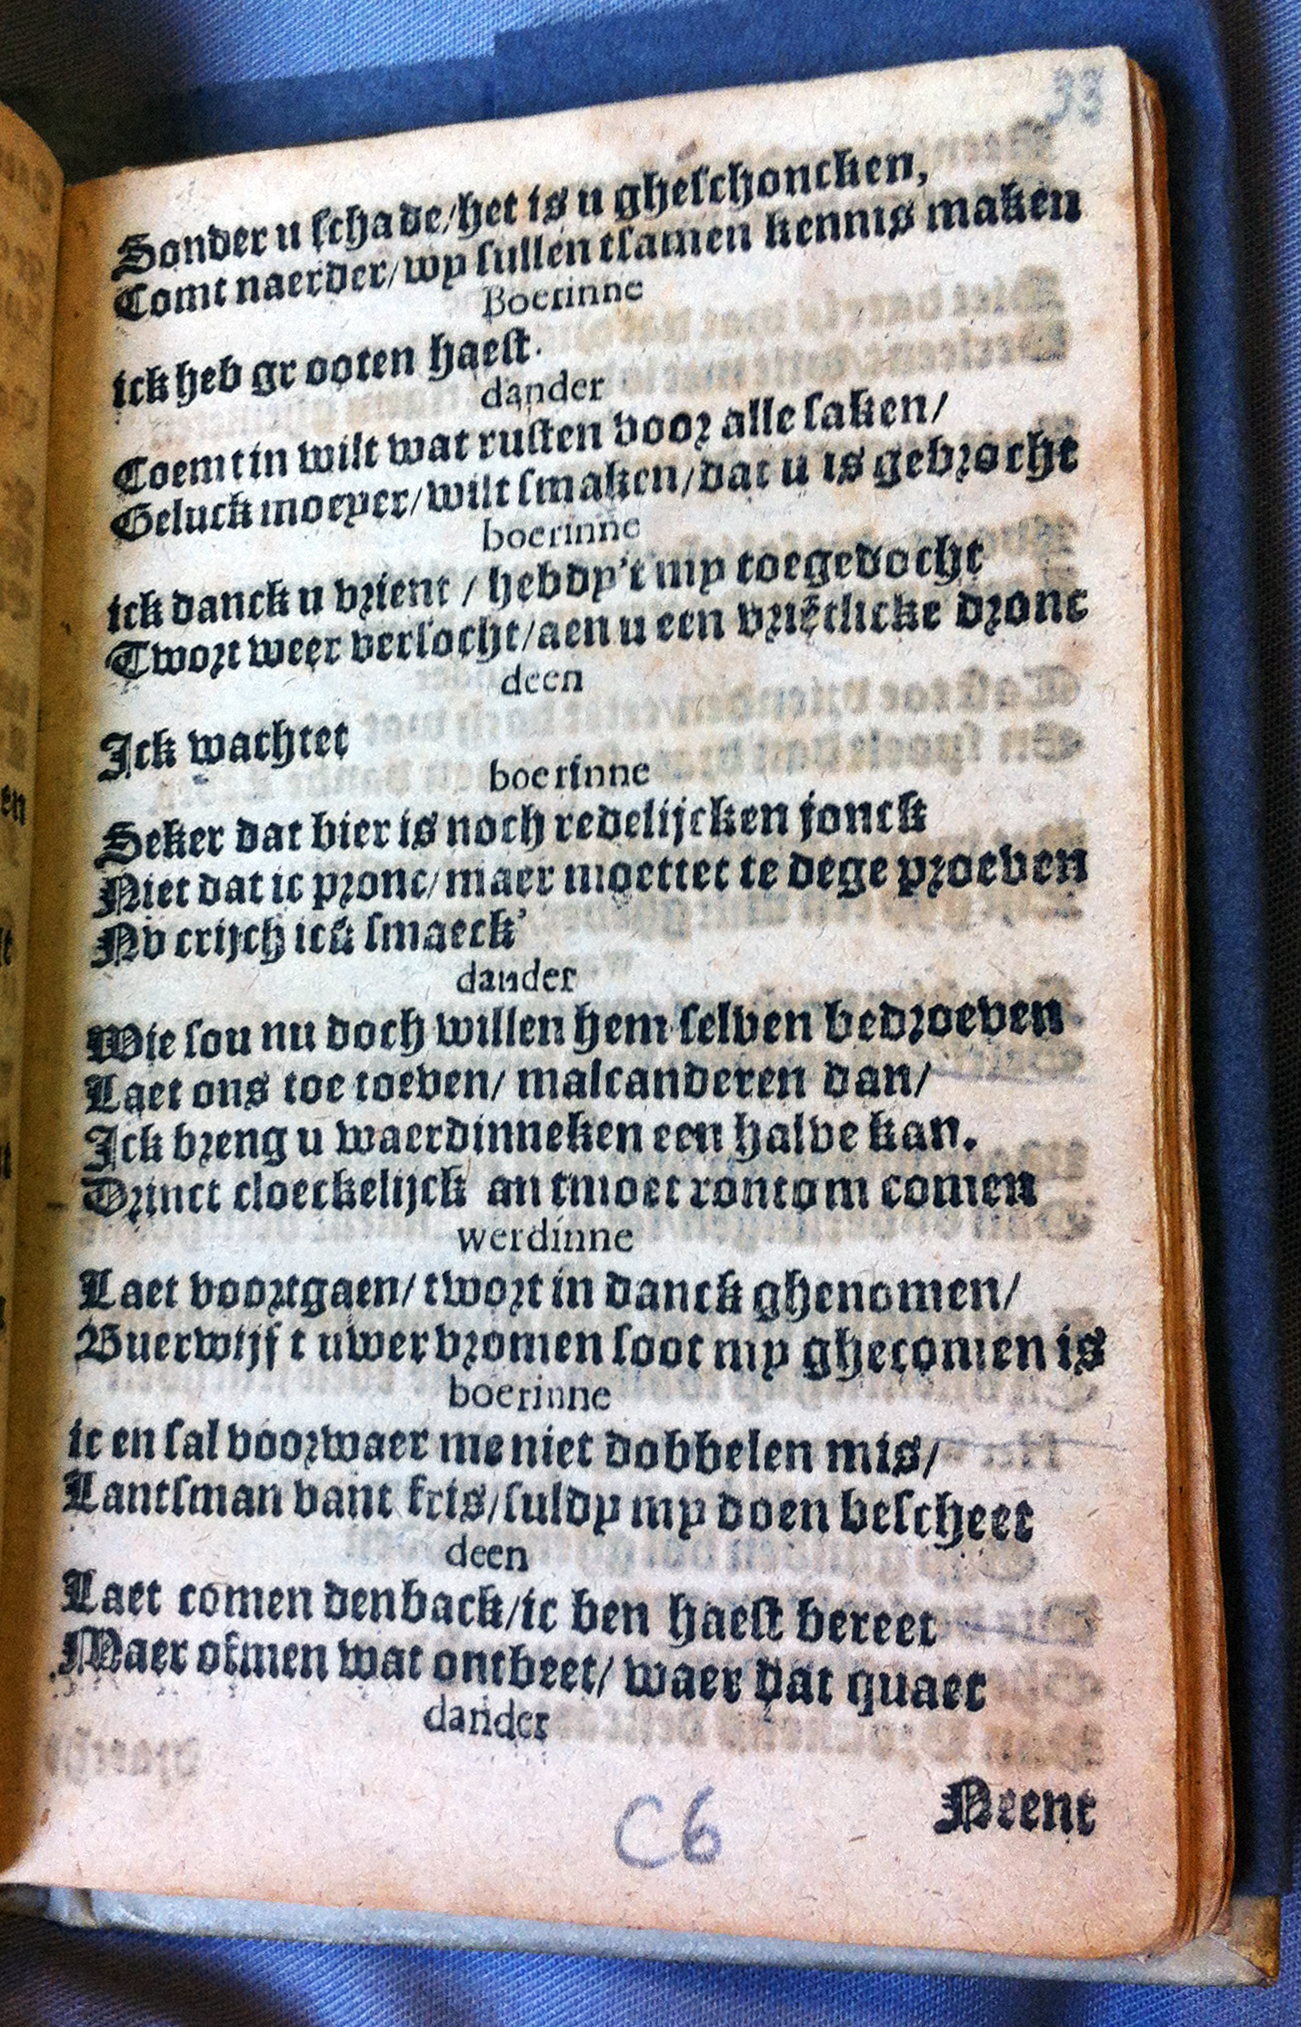 33
Sonder u schade/het is u gheschoncken,
Comt naerder/wy sullen tsamen kennis maken
Boerinne
ick heb gr ooten haest.
dander
Coemt in wilt wat rusten voor alle saken/
Geluck moeyer/wilt smaken/dat u is gebrocht
boerinne
ick danck u vrient / hebdy't my toegedocht
Twort weer versocht/aen u een vriẽtlicke dronc
deen
Ick wachtet
boerinne
Seker dat bier is noch redelijcken jonck
Niet dat ic pronc/maer moettet te dege proeven
Nv crijch ick smaeck'
dander
Wie sou nu doch willen hem selven bedroeven
Laet ons toe toeven/ malcanderen dan/
Ick breng u waerdinneken een halve kan.
Drinct cloeckelijck an tmoet rontom comen
werdinne
Laet voortgaen/ twort in danck ghenomen/
Buerwijf t uwer vromen soot my ghecomen is
boerinne
ic en sal voorwaer me niet dobbelen mis/
Lantsman vant fris/suldy my doen bescheet
deen
Laet comen den back/ic ben haest bereet
Maer ofmen wat ontbeet/ waer dat quaet
dander
C6
Neent